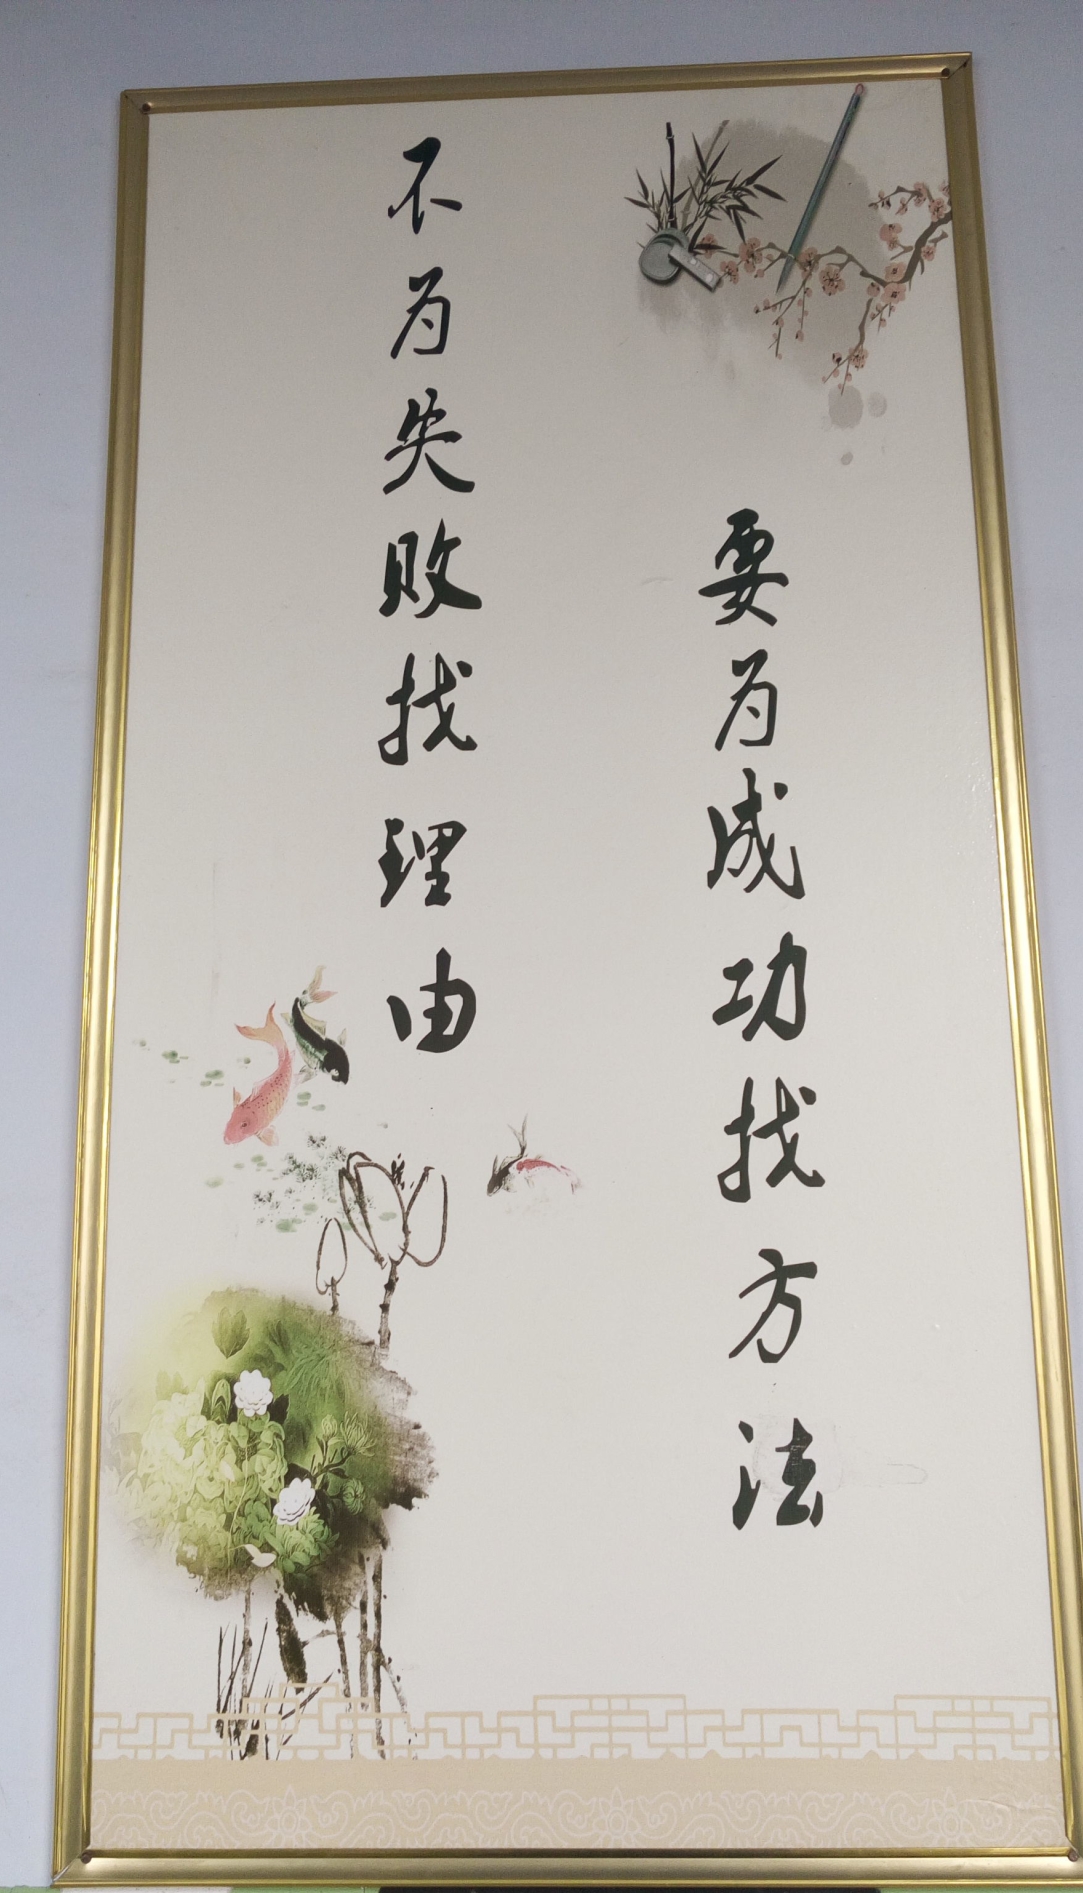 要为成功找方法
不为失败找理由